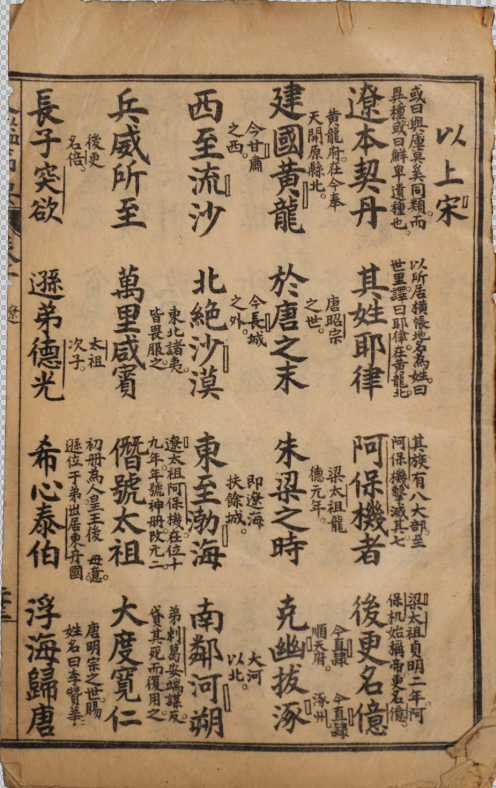 以上宋
遼本契丹
或曰與庫莫奚同類而
異種或曰鮮卑遺種也。
其姓耶律
以所居橫帳地名為姓曰
世里譯曰耶律在黃龍北
阿保機者
其族有八大部至
阿保機擊滅其七
後更名億
梁太祖貞明二年阿
保机始稱帝更名億。
建國黃龍
黃龍府在今奉
天開原縣北。
於唐之末
唐昭宗
之世。
朱梁之時
梁太祖龍
德元年。
克幽拔涿
今直隸
順天府。
今直隸
涿州。
西至流沙
今甘肅
之西。
北絕沙漠
今長城
之外。
東至渤海
即遼海
扶餘城。
南鄰河朔
大河
以北。
兵威所至
萬里咸賓
東北諸夷
皆畏服之。
僭號太祖
遼太祖阿保機在位十
九年年號神册改元二
大度寬仁
弟剌葛安端謀反
貸其死而復用之。
長子突欲
後更
名倍。
遜弟德光
太祖
次子。
希心泰伯
初册為人皇王後 毋意
遜位于弟出居東丹國
浮海歸唐
唐明宗之世賜
姓名曰李贊華。